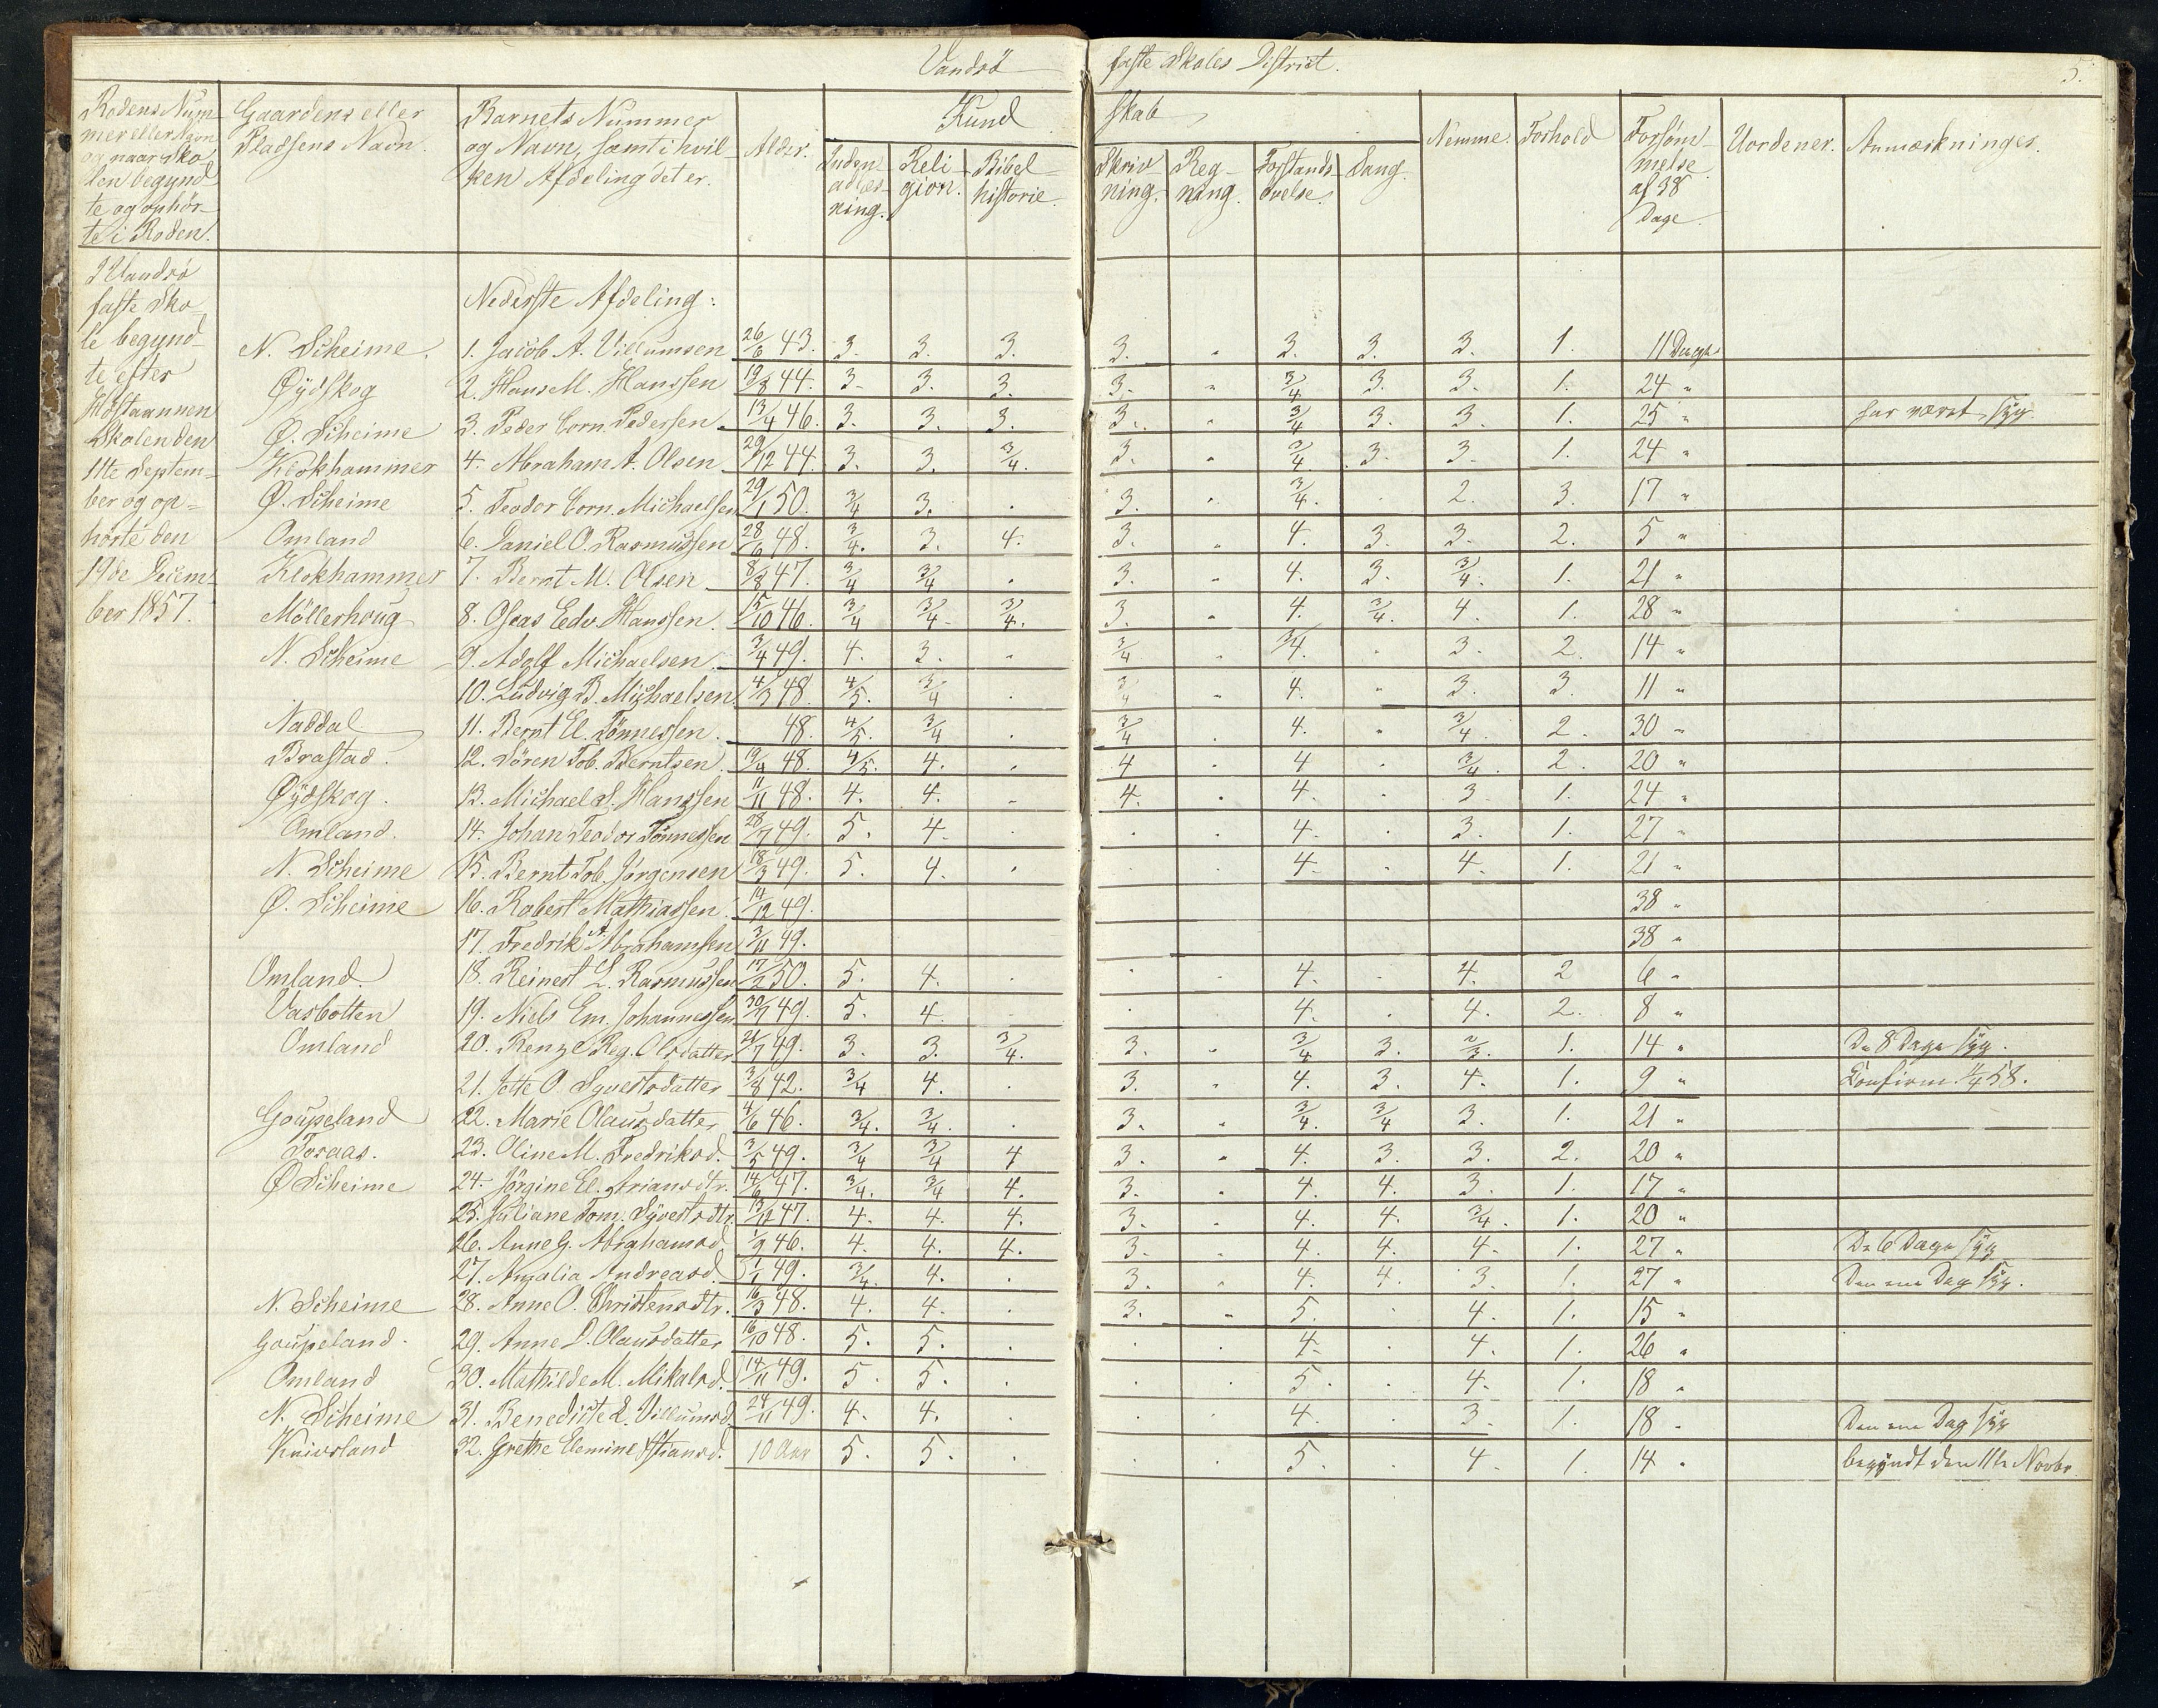 Vandsö faste Skoles District. 5.
Rodens Num-
mer eller Navn
og naar Sko-
len begynd-
te og ophör-
te i Roden.
Gaardens eller
Pladsens Navn.
Barnets Nummer
og Navn, samt i hvil-
ken Afdeling det er.
Alder.
Kundskab
Indenadlæsning.
Religion.
Bibelhistorie.
Skrivning.
Regning.
Forstandsövelse.
Sang.
Nemme.
Forhold
Forsömmelse af 38 Dage.
Uordener.
Anmærkninger.
I Vandsö
faste Sko-
le begynd-
te efter
Höstaannen
Skolen den
11te Septem-
ber og op-
hörte den
19de Decem-
ber 1857.
Nederste Afdeling:
N. Scheime. 1. Jacob A. Villumsen 26/6 43. 3. 3. 3. 3. " 3. 3. 3. 1. 11 Dage
Öÿdskog 2. Hans M. Hanssen 19/8 44. 3. 3. 3. 3. " 3/4 3. 3. 1. 24 "
Ö. Scheime 3. Peder Corn. Pedersen. 13/4 46. 3. 3. 3. 3. " 3/4 3. 3. 1. 25 " har været syg.
Klokhammer 4. Abraham A. Olsen 29/12 44. 3. 3. 3/4. 3. " 3/4. 3. 3. 1. 24 "
Ö. Scheime 5. Teodor Corn. Michaelsen 29/1 50. 3/4 3. . 3. " 3/4. . 2. 3. 17 "
Omland 6. Daniel O. Rasmussen 28/6 48. 3/4. 3. 4. 3. " 4. 3. 3. 2. 5 "
Klokhammer 7. Bernt M. Olsen 8/8 47. 3/4 3/4 . 3. " 4. 3. 3/4. 1. 21 "
Möllerhoug 8. Oseas Edv. Hanssen. 15/10 46. 3/4 3/4. 3/4. 3. " 4. 3/4. 4. 1. 28 "
N. Scheime 9. Adolf Michaelsen. 3/4 49. 4. 3. " 3/4 " 3/4. . 3. 2. 14 "
10. Ludvig B. Michaelsen. 4/3 48. 4/5. 3/4 . 3/4 " 4. " 3. 3. 11 "
Naddal 11. Bernt El. Tönnessen. 48. 4/5. 3/4 . 3/4 . 4. " 3/4. 2. 30 "
Brastad. 12. Sören Tob. Berntsen. 19/4 48. 4/5. 4. . 4 . 4 . 3/4. 2. 20 "
Öÿdskog. 13. Michael S. Hanssen 11/11 48. 4. 4. . 4. . 4. . 3 1. 24 "
Omland. 14. Johan Teodor Tönnessen 28/7 49. 5. 4. . . . 4. . 3. 1. 27 "
N. Scheime 15. Bernt Tob. Jörgensen 18/3 49. 5. 4. . . . 4. . 4. 1. 21 "
Ö. Scheime 16. Robert Mathiassen. 14/12 49. 38 "
17. Fredrik A. Abrahamsen 3/11 49. 38 "
Omland. 18. Reinert L. Rasmussen 17/2 50. 5. 4. . . . 4. . 4. 2 6 "
Vasbotten 19. Niels Em. Johannessen 49. 5. 4. . . . 4. . 4. 2. 8 "
Omland 20. Renze Reg. Olsdatter 21/7 49. 3. 3. 3/4. 3. " 3/4 3. 2/3. 1. 14 " De 8 Dage syg.
21. Jette O. Syvertsdatter 3/8 42. 3/4 4. . 3. " 4. 3. 4. 1. 9 " Confirm. 58.
Goupeland 22. Marie Olausdatter 4/6 46. 3/4. 3/4. . 3. " 3/4. 3/4 3. 1. 21 "
Foraas. 23. Oline M. Fredriksd. 3/5 49. 3/4 3/4 4 3. " 4. 3. 3. 2. 20 "
Ö Scheime 24. Jörgine El. Ariansdtr. 14/6 47. 3/4. 3/4 4. 3. " 4. 4. 3. 1. 17 "
25. Juliane Tom. Syvertsdtr. 13/12 47. 4. 4. 4. 3. " 4. 4. 3/4. 1. 20 "
26. Anne G. Abrahamsd 1/9 46. 4. 4. 4. 3. " 4. 4. 4. 1. 27 " De 6 Dage syg
27. Amalia Andreasd. 49. 3/4. 4. . 3. " 4. 4. 3. 1. 27 " Den ene Dag syg.
N. Scheime 28. Anne O. Christensdtr. 16/3 48. 4. 4. . 3. " 5. . 4. 1. 15 "
Goupeland. 29. Anne D. Olausdatter 16/10 48. 5. 5. . . . 4. . 4. 1. 26 "
Omland 30. Mathilde M. Mikalsd. 14/11 49. 5. 5. . . . 5. . 4. 1. 18 "
N. Scheime 31. Benedicte L. Villumsd. 24/11 49. 4. 4. . . . 4. . 3. 1. 18 " Den ene Dag syg
Knivsland 32. Grethe Elemine Stiansd. 10 Aar 5. 5. . . . 5. . 4. 1. 14 " begÿndt den 11te Novbr.